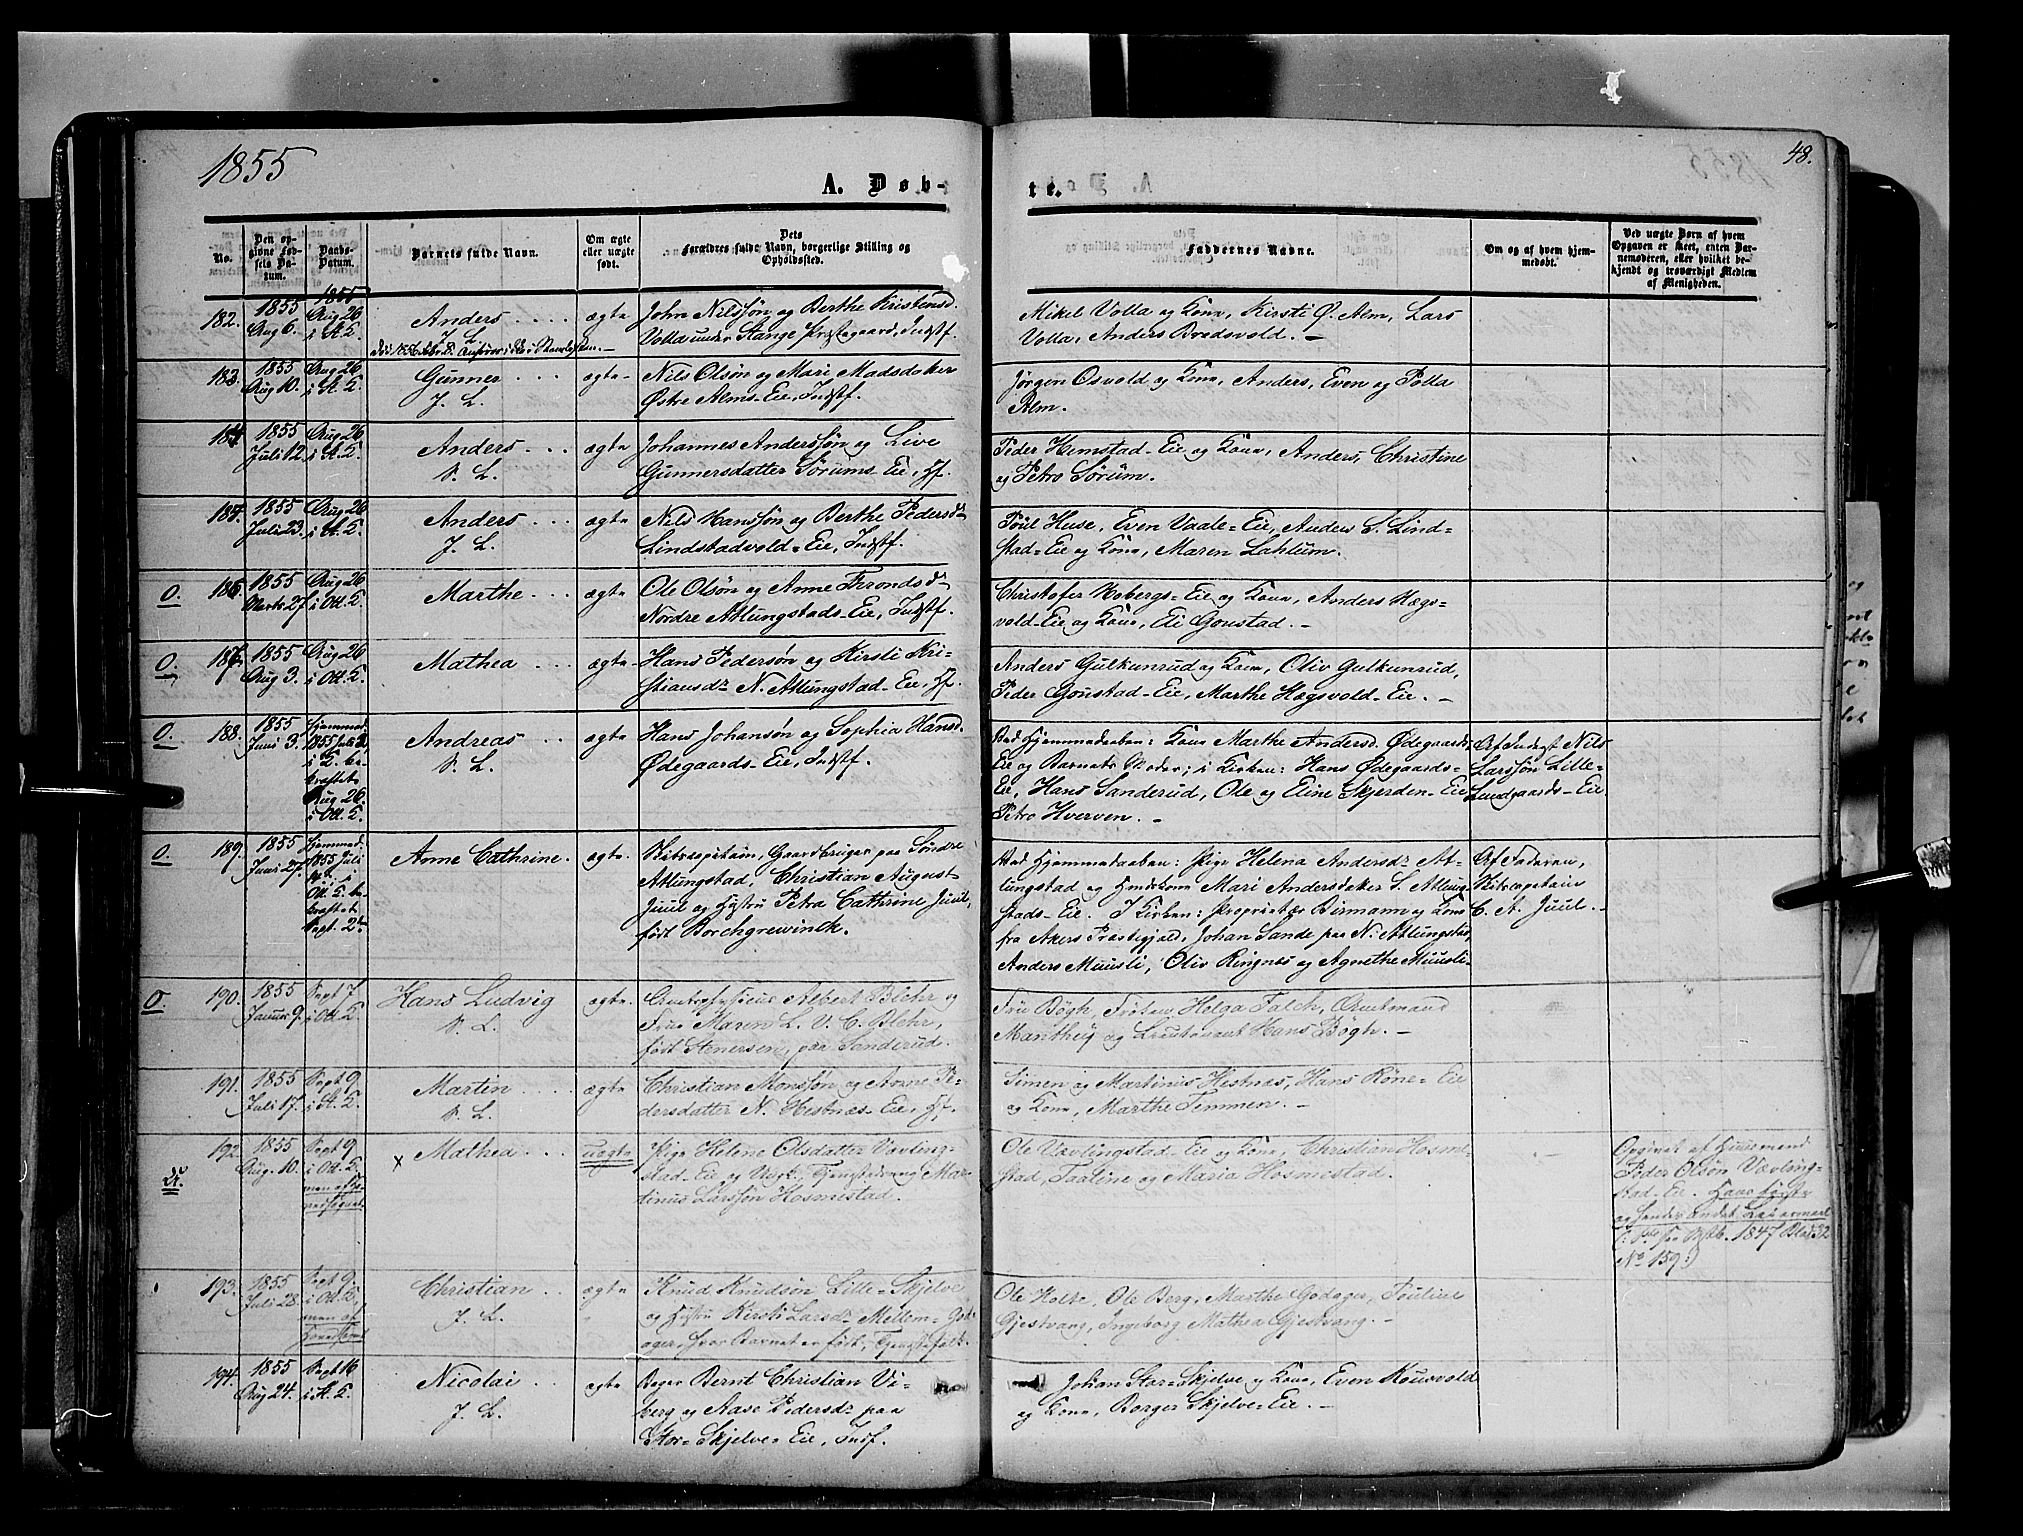 1855
48.
A. Døb-
te.
No.
Den op-
givne Fød-
sels Da-
tum.
Daabs-
Datum.
Barnets fulde Navn.
Om ægte
eller uægte
født.
Dets
Forældres fulde Navn, borgerlige Stilling og
Opholdssted.
Faddernes Navne.
Om og af hvem hjem-
medøbt.
Ved uægte Børn af hvem
Opgaven er skeet, enten Bar-
nemoderen, eller hvilket be-
kjendt og troværdigt Medlem
af Menigheden.
182.
1855
Aug 6.
1855
Aug 26
i St. K.
Anders
V. L.
ægte
John Nilssøn og Berthe Kristensd.
Volla under Stange Præstegaard, Indstf.
Mikel Volla og Kone, Kirsti Ø. Alm, Lars
Volla, Anders Bredsvold. –
183.
1855
Aug 10.
Aug 26
i St. K.
Gunner
J. L.
ægte
Nils Olsøn og Mari Madsdatter
Østre Alms-Eie, Indstf.
Jørgen Osvold og Kone, Anders, Even og Polla
Alm.
184.
1855
Juli 12.
Aug 26
i St. K.
Anders
V. L.
ægte
Johannes Anderssøn og Live
Gunnersdatter Sørums-Eie, Hf.
Peder Hemstad-Eie og Kone, Anders, Christine
og Petro Sørum.
185.
1855
Juli 23.
Aug 26
i St. K.
Anders
J. L.
ægte
Nils Hanssøn og Berthe Pedersdr
Lindstadvold-Eie, Indstf.
Poul Huse, Even Vaale-Eie, Anders S. Lind-
stad-Eie og Kone, Maren Lahlum.
O.
186.
1855
Marts 27.
Aug 26
i Ott. K.
Marthe
ægte
Ole Olsøn og Anne Trondsdr
Nordre Atlungstads-Eie, Indstf.
Christofer Hobergs-Eie og Kone, Anders Hægs-
vold-Eie og Kone, Eli Goustad. –
O.
187.
1855
Aug 3.
Aug 26
i Ott. K.
Mathea
ægte
Hans Pedersøn og Kirsti Kri-
stiansdr N. Atlungstad-Eie, Hf.
Anders Gulkunrud og Kone, Oliv Gulkunrud,
Peder Goustad-Eie, Marthe Hægsvold-Eie. –
O.
188.
1855
Juni 3.
Hjemmed.
1855 Juli
i K. be-
kræftet
Aug 26.
i Ott. K.
Andreas
V. L.
ægte
Hans Johansøn og Sophia Hansd.
Ødegaards-Eie, Indstf.
Ved Hjemmedaaben: Kone Marthe Andersd. Ødegaards-
Eie og Barnets Moder; i Kirken: Hans Ødegaards-
Eie, Hans Sanderud, Ole og Eline Skjerden-Eie
Petro Hverven. –
Af Indstf Nils
Larssøn Lille-
Lundgaards-Eie.
O.
189.
1855
Juni 27.
Hjemmed.
1855 Juli
i
Ott. K. be-
kræftet
Sept. 2
Anne Cathrine.
ægte.
Ritmester, Gaardbruger paa Søndre
Atlungstad, Christian August
Juul og Hustru Petra Cathrine Juul,
født Borchgrewinck.
Ved Hjemmedaaben: Pige Helena Andersdr At-
lungstad og Huuskone Mari Andersdatter S. Atlung-
stads-Eie. I Kirken: Proprietær Birmann og Kone
fra Akers Præstegjeld, Johan Sande paa N. Atlungstad,
Anders Muusli, Oliv Ringnæs og Agnethe Muusli.
Af Faderen,
C. A. Juul. –
O.
190.
1855
Januar 9.
Sept 7
i Ott. K.
Hans Ludvig
V. L.
ægte.
Amtsfysicus Albert Blehr og
Frue Maren L. V. C. Blehr,
født Stenersen, paa Sanderud.
Fru Bøgh, Frøken Helga Falch, Amtmand
Manthey og Lieutenant Hans Bøgh. –
191.
1855
Juli 17.
Sept 9.
i St. K.
Martin
V. L.
ægte
Christian Monssøn og Anne Pe-
dersdatter N. Hestnæs-Eie, Hf.
Simen og Martinus Hestnæs, Hans Røne-Eie
og Kone, Marthe Temmen. –
U.
192.
1855
Aug. 10.
Sept 9
i Ott. K.
x Mathea
uægte
Pige Helene Olsdatter Vævling-
stad-Eie og Ungk., Tjenestedreng Mar-
tinus Larssøn Hosmestad.
Ole Vævlingstad-Eie og Kone, Christian Hosme-
stad, Taaline og Maria Hosmestad.
–
Opgivet af Huusmand
Peder Olsøn Vævling-
stad-Eie. Hans første
og hendes andet Leiermaal
1847 Blad 32
No 159.)
193.
1855
Juli 28.
Sept 9.
i Ott. K.
Christian
J. L.
ægte
Knud Knudsøn Lille-Skjelve
og Hustru Kirsti Larsdr Mellem-God-
ager, hvor Barnet er født, Tjenestefolk.
Ole Holte, Ole Berg, Marthe Godager, Pouline
Gjestvang, Ingeborg Mathea Gjestvang. –
194.
1855
Aug 24.
Sept 16
i St. K.
Nicolai
J. L.
ægte
Bager Bernt Christian Vi-
berg og Aase Pedersdr paa
Stor-Skjelve-Eie, Indf.
Johan Stor-Skjelve og Kone, Even Rousvold
og Kone, Borger Skjelve-Eie. –